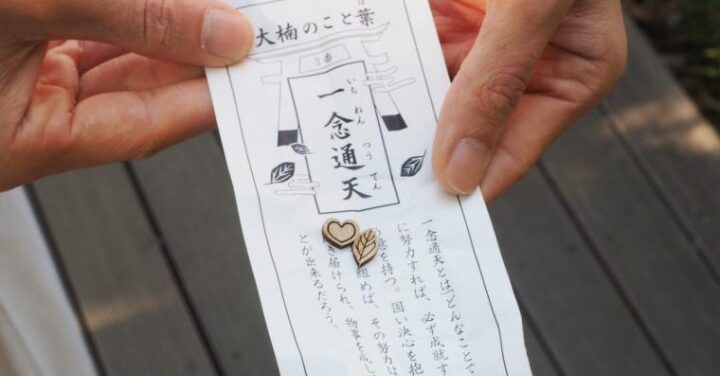 大楠のこと葉
は
3番
一念通天
いちねんつうてん
一念通天とは「どんなことで
に努力すれば、必ず成就す
意を持つ。固い決心を抱
組めば、その努力は
き届けられ、物事を成し
とが出来るだろう。